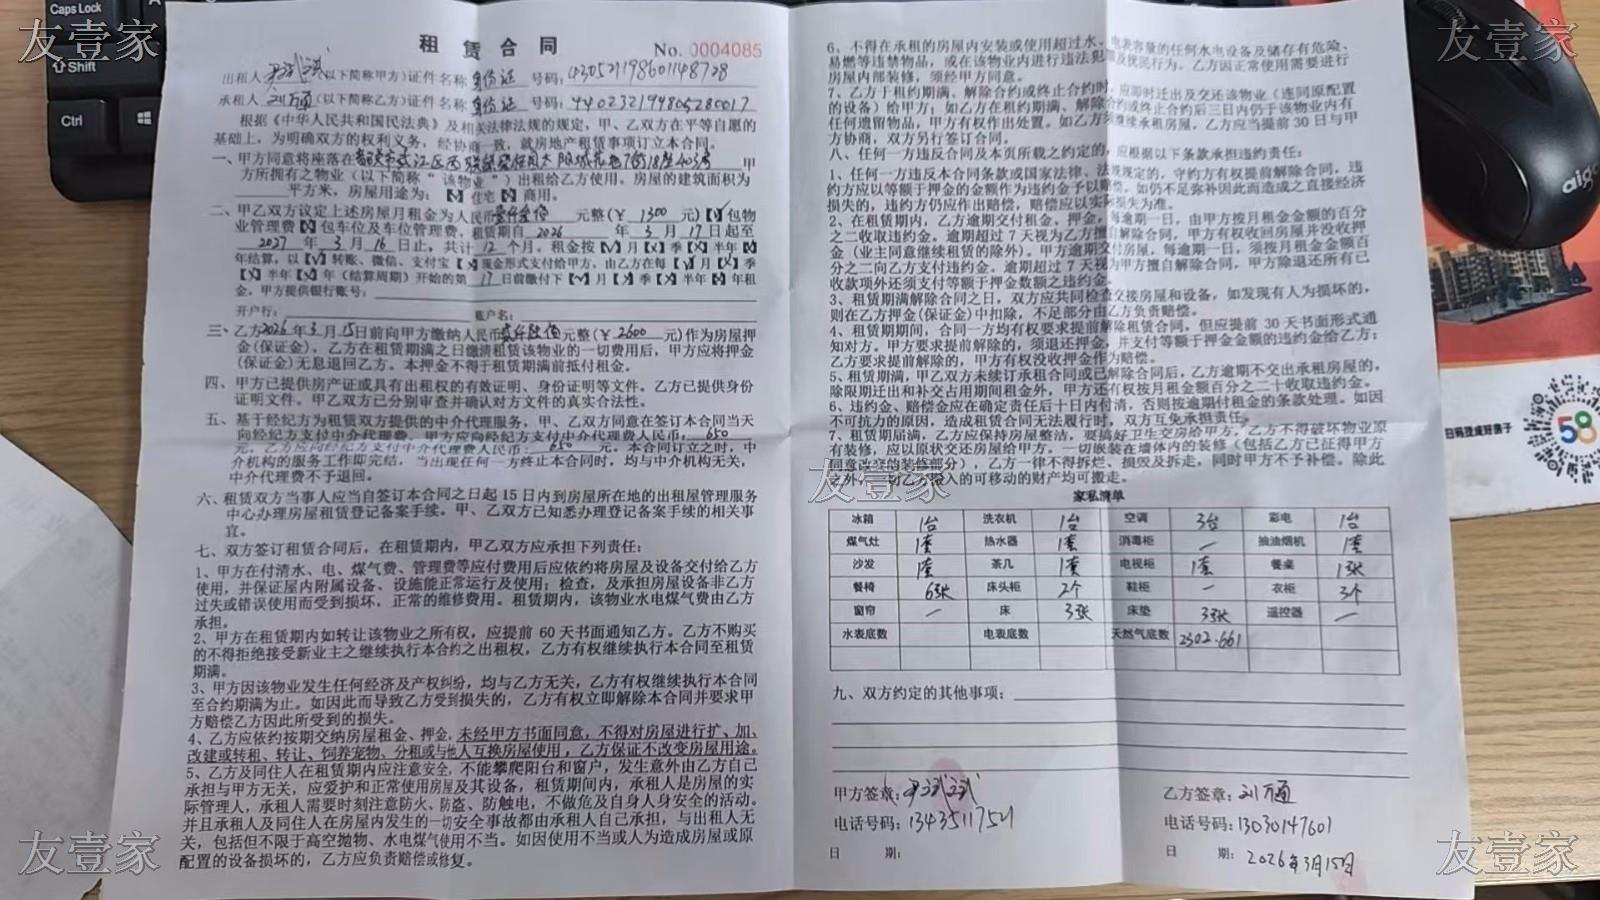 友壹家
友壹家
Caps Lock
Shift
Ctrl
租赁合同 No. 0004085
出租人 (以下简称甲方)证件名称 身份证 号码:430521198601148728
承租人 刘万通 (以下简称乙方)证件名称 身份证 号码:440232194805280017
根据《中华人民共和国民法典》及相关法律法规的规定，甲、乙双方在平等自愿的
基础上，为明确双方的权利义务，经协商一致，就房地产租赁事项订立本合同。
一、甲方同意将座落在 武江区西 7 18座403房 甲
方所拥有之物业（以下简称“该物业”）出租给乙方使用。房屋的建筑面积为
平方米，房屋用途为：【】住宅【】商用。
二、甲乙双方议定上述房屋月租金为人民币壹仟叁佰 元整(￥ 1300 元)【√】包物
业管理费【】包车位及车位管理费，租赁期自 2026 年 3 月 17 日起至
2027 年 3 月 16 日止，共计 12 个月。租金按【√】月【×】季【×】半年【×】
年结算，以【√】转账、微信、支付宝【】现金形式支付给甲方，由乙方在每【√】月【×】季
【×】半年【×】年（结算周期）开始的第 17 日前缴付下【√】月【×】季【×】半年【×】年租
金。甲方提供银行账号：
开户行： 账户名：
三、乙方2026年3月15日前向甲方缴纳人民币贰仟陆佰元整(￥ 2600 元)作为房屋押
金(保证金)，乙方在租赁期满之日缴清租赁该物业的一切费用后，甲方应将押金
(保证金)无息退回乙方。本押金不得于租赁期满前抵付租金。
四、甲方已提供房产证或具有出租权的有效证明、身份证明等文件。乙方已提供身份
证明文件。甲乙双方已分别审查并确认对方文件的真实合法性。
五、基于经纪方为租赁双方提供的中介代理服务，甲、乙双方同意在签订本合同当天
向经纪方支付中介代理费。甲方应向经纪方支付中介代理费人民币： 650
元。乙方应向经纪方支付中介代理费人民币： 650 元。本合同订立之时，中
介机构的服务工作即完结，当出现任何一方终止本合同时，均与中介机构无关，
中介代理费不予退回。
六、租赁双方当事人应当自签订本合同之日起 15 日内到房屋所在地的出租屋管理服务
中心办理房屋租赁登记备案手续。甲、乙双方已知悉办理登记备案手续的相关事
宜。
七、双方签订租赁合同后，在租赁期内，甲乙双方应承担下列责任：
1、甲方在付清水、电、煤气费、管理费等应付费用后应依约将房屋及设备交付给乙方
使用，并保证屋内附属设备、设施能正常运行及使用；检查，及承担房屋设备非乙方
过失或错误使用而受到损坏，正常的维修费用。租赁期内，该物业水电煤气费由乙方
承担。
2、甲方在租赁期内如转让该物业之所有权，应提前 60 天书面通知乙方。乙方不购买
的不得拒绝接受新业主之继续执行本合约之出租权，乙方有权继续执行本合同至租赁
期满。
3、甲方因该物业发生任何经济及产权纠纷，均与乙方无关，乙方有权继续执行本合同
至合约期满为止。如因此而导致乙方受到损失的，乙方有权立即解除本合同并要求甲
方赔偿乙方因此所受到的损失。
4、乙方应依约按期交纳房屋租金、押金，未经甲方书面同意，不得对房屋进行扩、加、
改建或转租、转让、饲养宠物、分租或与他人互换房屋使用，乙方保证不改变房屋用途。
5、乙方及同住人在租赁期内应注意安全，不能攀爬阳台和窗户，发生意外由乙方自己
承担与甲方无关，应爱护和正常使用房屋及其设备，租赁期间内，承租人是房屋的实
际管理人，承租人需要时刻注意防火、防盗、防触电，不做危及自身人身安全的活动。
并且承租人及同住人在房屋内发生的一切安全事故都由承租人自己承担，与出租人无
关，包括但不限于高空抛物、水电煤气使用不当。如因使用不当或人为造成房屋或原
配置的设备损坏的，乙方应负责赔偿或修复。
6、不得在承租的房屋内安装或使用超过水、电表容量的任何水电设备及储存有危险、
易燃等违禁物品，或在该物业内进行违法犯 及扰民行为。乙方因正常使用需要进行
房屋内部装修，须经甲方同意。
7、乙方于租约期满、解除合约或终止合约时，应即时迁出及交还该物业（连同原配置
的设备）给甲方；如乙方在租约期满、解除合约或终止合约后三日内仍于该物业内有
任何遗留物品，甲方有权作出处置。如乙方须继续承租房屋，乙方应当提前 30 日与甲
方协商，双方另行签订合同。
八、任何一方违反合同及本页所载之约定的，应根据以下条款承担违约责任：
1、任何一方违反本合同条款或国家法律、法规规定的，守约方有权提前解除合同，违
约方应以等额于押金的金额作为违约金予以赔偿。如仍不足弥补因此而造成之直接经济
损失的，违约方仍应作出赔偿，赔偿应以实际损失为准。
2、在租赁期内，乙方逾期交付租金、押金，每逾期一日，由甲方按月租金金额的百分
之二收取违约金。逾期超过 7 天视为乙方擅自解除合同，甲方有权收回房屋并没收押
金（业主同意继续租赁的除外）。甲方逾期交付房屋，每逾期一日，须按月租金金额百
分之二向乙方支付违约金。逾期超过 7 天视为甲方擅自解除合同，甲方除退还所有已
收款项外还须支付等额于押金数额之违约金。
3、租赁期满解除合同之日，双方应共同检查交接房屋和设备，如发现有人为损坏的，
则在乙方押金(保证金)中扣除，不足部分由乙方负责赔偿。
4、租赁期期间，合同一方均有权要求提前解除租赁合同，但应提前 30 天书面形式通
知对方。甲方要求提前解除的，须退还押金，并支付等额于押金金额的违约金给乙方；
乙方要求提前解除的，甲方有权没收押金作为赔偿。
5、租赁期满，甲乙双方未续订承租合同或已解除合同后，乙方逾期不交出承租房屋的，
除限期迁出和补交占用期间租金外，甲方还有权按月租金额百分之二十收取违约金。
6、违约金、赔偿金应在确定责任后十日内付清，否则按逾期付租金的条款处理。如因
不可抗力的原因，造成租赁合同无法履行时，双方互免承担责任。
7、租赁期届满，乙方应保持房屋整洁，要搞好卫生交房给甲方，乙方不得破坏物业原
有装修，应以原状交还房屋给甲方。一切嵌装在墙体内的装修（包括乙方已征得甲方
同意改建的装修部分），乙方一律不得拆烂、损毁及拆走，同时甲方不予补偿。除此
之外，一切乙方 入的可移动的财产均可搬走。
友壹家
家私清单
冰箱 1台 洗衣机 1台 空调 3台 彩电 1台
煤气灶 1套 热水器 1套 消毒柜 — 抽油烟机 1套
沙发 1套 茶几 1套 电视柜 1套 餐桌 1张
餐椅 6张 床头柜 2个 鞋柜 — 衣柜 3个
窗帘 — 床 3张 床垫 3张 遥控器 —
水表底数 电表底数 天然气底数 2302.661
九、双方约定的其他事项：
甲方签章： 乙方签章：刘万通
电话号码：13435117521 电话号码：13030147601
日 期： 日 期：2026年3月15日
aigo
58
友壹家
友壹家